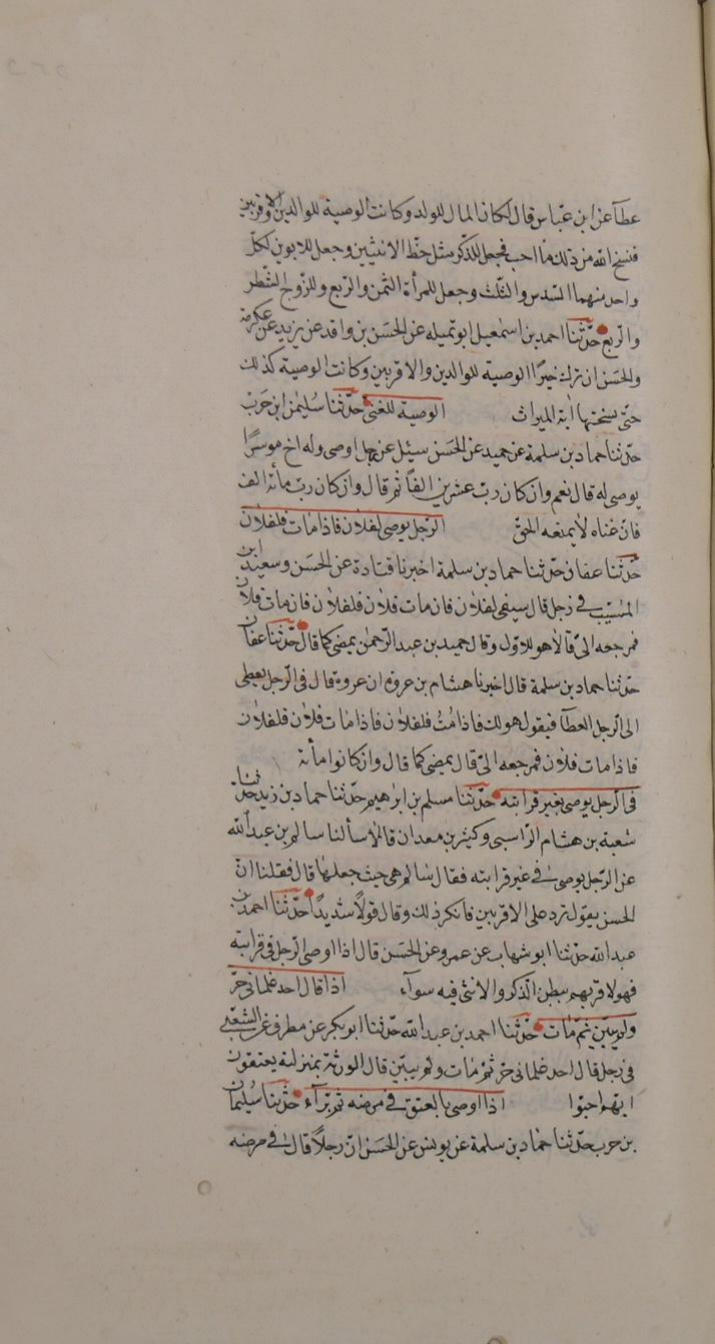 عطآ عن ابن عبّاس قال كان المال للولد وكانت الوصية للوالدين والاقربين
فنسخ الله من ذلك ما احب فجعل للذكر مثل حظ الانثيين وجعل للابوين لكلّ
واحد منهما السّدس والثّلث وجعل للمرأة الثمن والربع وللزوج الشّطر
والربع حدّثنا احمد بن اسمعيل ابو تميله عن الحسين بن واقد عن يزيد عن عكرمة
والحسن ان ترك خيرًا الوصية للوالدين والاقربين وكانت الوصية كذلك
حتى نسختها اٰية الميراث الوصية للغنى حدّثنا سليمٰن ابن حَرب
حدّثنا حماد بن سلمة عن حميد عن الحسن سيئل عن رجل اوصى وله اخ موسرًا
يوصى له قال نعم وان كان ربّ عشرين الفاً ثم قال وان كان ربّ مائة الف
فانّ غناه لا يمنعه الحقّ الرّجل يوصى لفلان فاذا مات فلفلان
حدّثنا عفان حدّثنا حماد بن سلمة اخبرنا قتادة عن الحسَن وسعيد ابن
المسّيب فى رجل قال سيفى لفلان فان مات فلان فلفلان فان مات فلان
فمرجعه الىّ قالا هو للاوّل وقال حميد بن عبد الرّحمٰن يمضى كما قال حدّثنا عفان
حدّثنا حماد بن سلمة قال اخبرنا هشام بن عروة ان عروة قال فى الرّجل يعطى
الى الرجل العطآ فيقول هو لك فاذا متُّ فلفلان فاذا مات فلان فلفلان
فاذا مات فلان فمرجعه الىّ قال يمضى كما قال وان كانوا مائة
فى الرّجل يوصى بغير قرابته حدّثنا مسلم بن ابرٰهيم حدّثنا حماد بن زيد حدّثنا
شعبة بن هشام الرّاسبى وكثير بن معدان قالا سألنا سالم بن عبد الله
عن الرّجل يوصى فى غير قرابته فقال سٰالم هى حيث جعلها قال فقلنا انّ
الحسن يقول ترد على الاقربين فانكر ذلك وقال قولاً شديدًا حدّثنا احمد بن
عبد الله حدّثنا ابو شهاب عن عمرو عن الحسَن قال اذا اوصى الرّجل فى قرابته
فهو لاقربهم ببطن الذّكر والانثى فيه سوآء اذا قال احد غلمانى حرّ
ولم يبيّن ثم مٰات حدّثنا احمد بن عبد الله حدّثنا ابو بكر عن مطرف عن الشّعبى
فى رجل قال احد غلمانى حرّ ثم مٰات ولم يبيّن قال الورثة بمنزلته يعتقون
ايّهم احبّوا اذا اوصى بالعتق فى مرضه ثم برآء حدّثنا سُليمٰان
بن حرب حدّثنا حمٰاد بن سلمة عن يونس عن الحَسَن انّ رجلاً قال فى مرضه